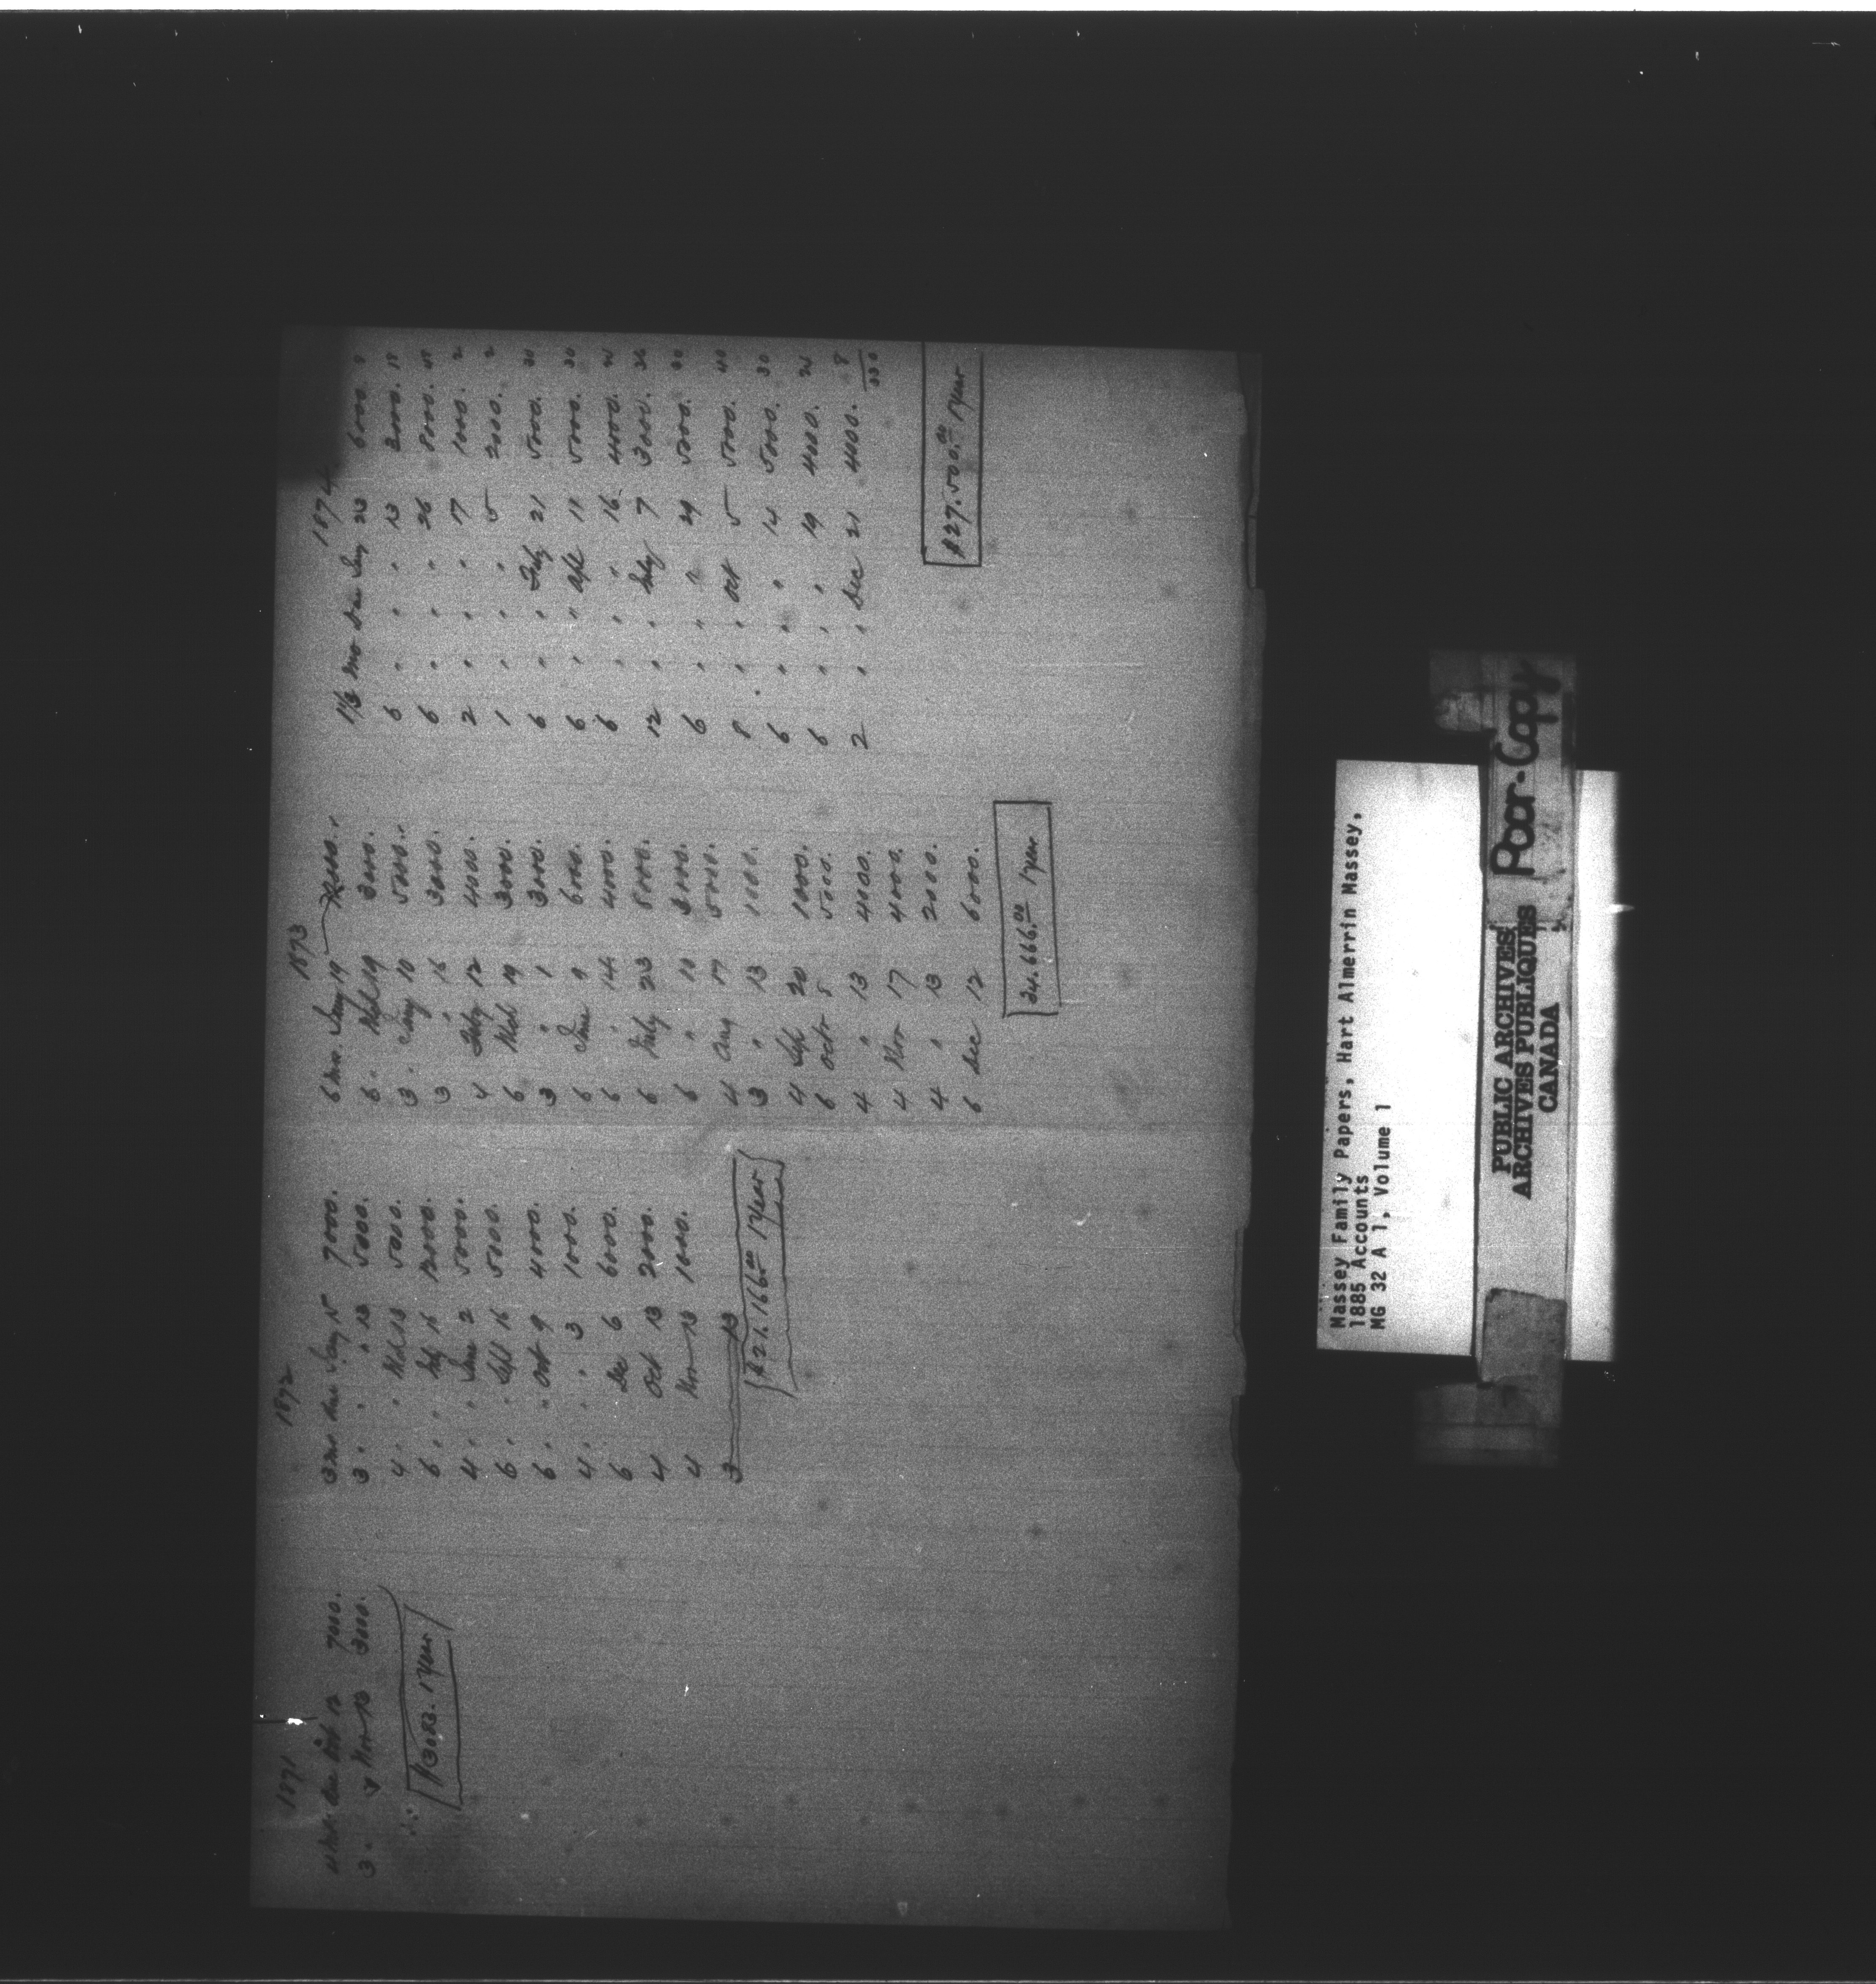 1871
4 Mos. due Oct 12 7000.
3 " " Nov 13 3000.
∴ 
1872
3 mo due Jany 5 7000.
3 " " " 13 5000.
4 " " Mch 13 5000.
6 " " July 16 12000.
4 " " June 2 5000.
6 " " Sept 16 5000.
6 " " Oct 9 4000.
4 " " " 3 1000.
6 Dec 6 6000.
4 Oct 13 2000.
4 Nov 13 1000.
3 13
$21.166.00 1 Year
1873
6 mo. Jany 19
6 " Mch 19 3000.
3 " Jany 10 5000.
3 " 16 3000.
4 Feby 12 4000.
6 Mch 19 3000.
3 " 1 3000.
6 June 9 6000.
6 " 14 4000.
6 July 23 5000.
6 " 10 3000.
4 Aug 17 5000.
3 " 13 1000.
4 Sept 20 1000.
6 Oct 5 5000.
4 " 13 4000.
4 Nov 17 4000.
4 " 13 2000.
6 Dec 12 6000.
34.666.00 1 Year
1874
1 1/3 mo due Jany 23 6000 8
6 " " " 13 3000. 18
6 " " " 26 8000. 48
2 " " " 17 1000. 2
1 " " " 5 2000. 2
6 " " Feby 21 5000. 30
6 " " Apl 11 5000. 30
6 " " " 16 4000. 24
12 " " July 7 3000. 36
6 " " " 29 5000. 30
8 " " Oct 5 5000. 40
6 " " " 14 5000. 30
6 " " " 19 4000. 24
2 " " Dec 21 4000. 8
330
$27.500.00 1 Year
Massey Family Papers, Hart Almerrin Massey,
1885 Accounts
MG 32 A 1, Volume 1
PUBLIC ARCHIVES
ARCHIVES PUBLIQUES
CANADA
Poor-Copy